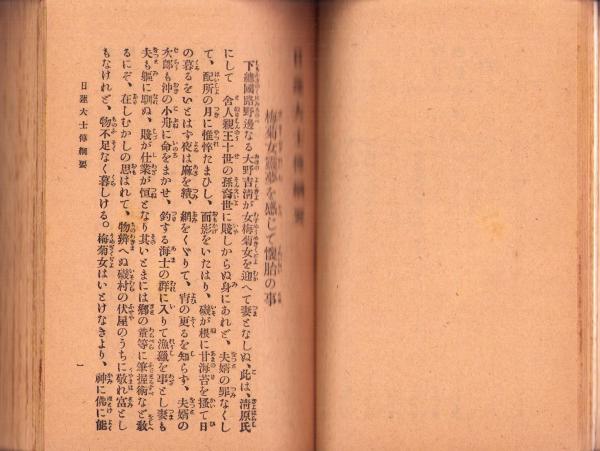 日蓮大士傳綱要
梅菊女靈夢を感じて懷胎の事
下總國路野邊なる大野吉清が女梅菊女を迎へて妻となしぬ、此は、清原氏
にして 舍人親王十世の孫裔世に賤しからぬ身にあれど、夫婿の罪なくし
て、配所の月に憔悴たまひし、面影をいたはり、磯が根に甘海苔を搔て日
の暮るをいとはず夜は麻を績、網をくゞりて、宵の更るを知らす、夫婿の
次郎も沖の小舟に命をまかせ、釣する海士の群に入りて漁獵を事とし妻も
夫も軀に馴ぬ、賤が仕業が恒となり其いとまには鄕の童等に筆握術など敎
るにぞ、在しむかしの思はれて、物辨へぬ磯村の伏屋のうちに敬れ富とし
もなけれど、物不足なく暮しける。梅菊女はいとけなきより、神に佛に能
日蓮大士傳綱要
一